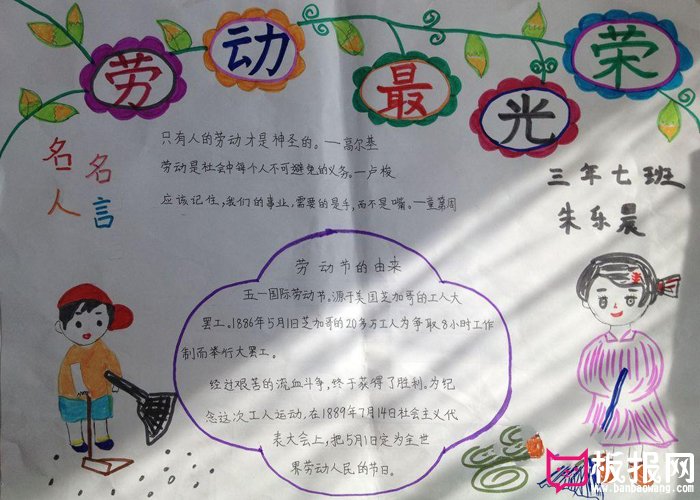 劳动最光荣
名人名言
只有人的劳动才是神圣的。—高尔基
劳动是社会中每个人不可避免的义务。—卢梭
应该记住,我们的事业,需要的是手,而不是嘴。—童第周
三年七班
朱乐晨
劳动节的由来
五一国际劳动节,源于美国芝加哥的工人大
罢工。1886年5月1日芝加哥的20多万工人为争取8小时工作
制而举行大罢工。
经过艰苦的流血斗争,终于获得了胜利。为纪
念这次工人运动,在1889年7月14日社会主义代
表大会上,把5月1日定为全世
界劳动人民的节日。
板报网
www.banbaowang.com